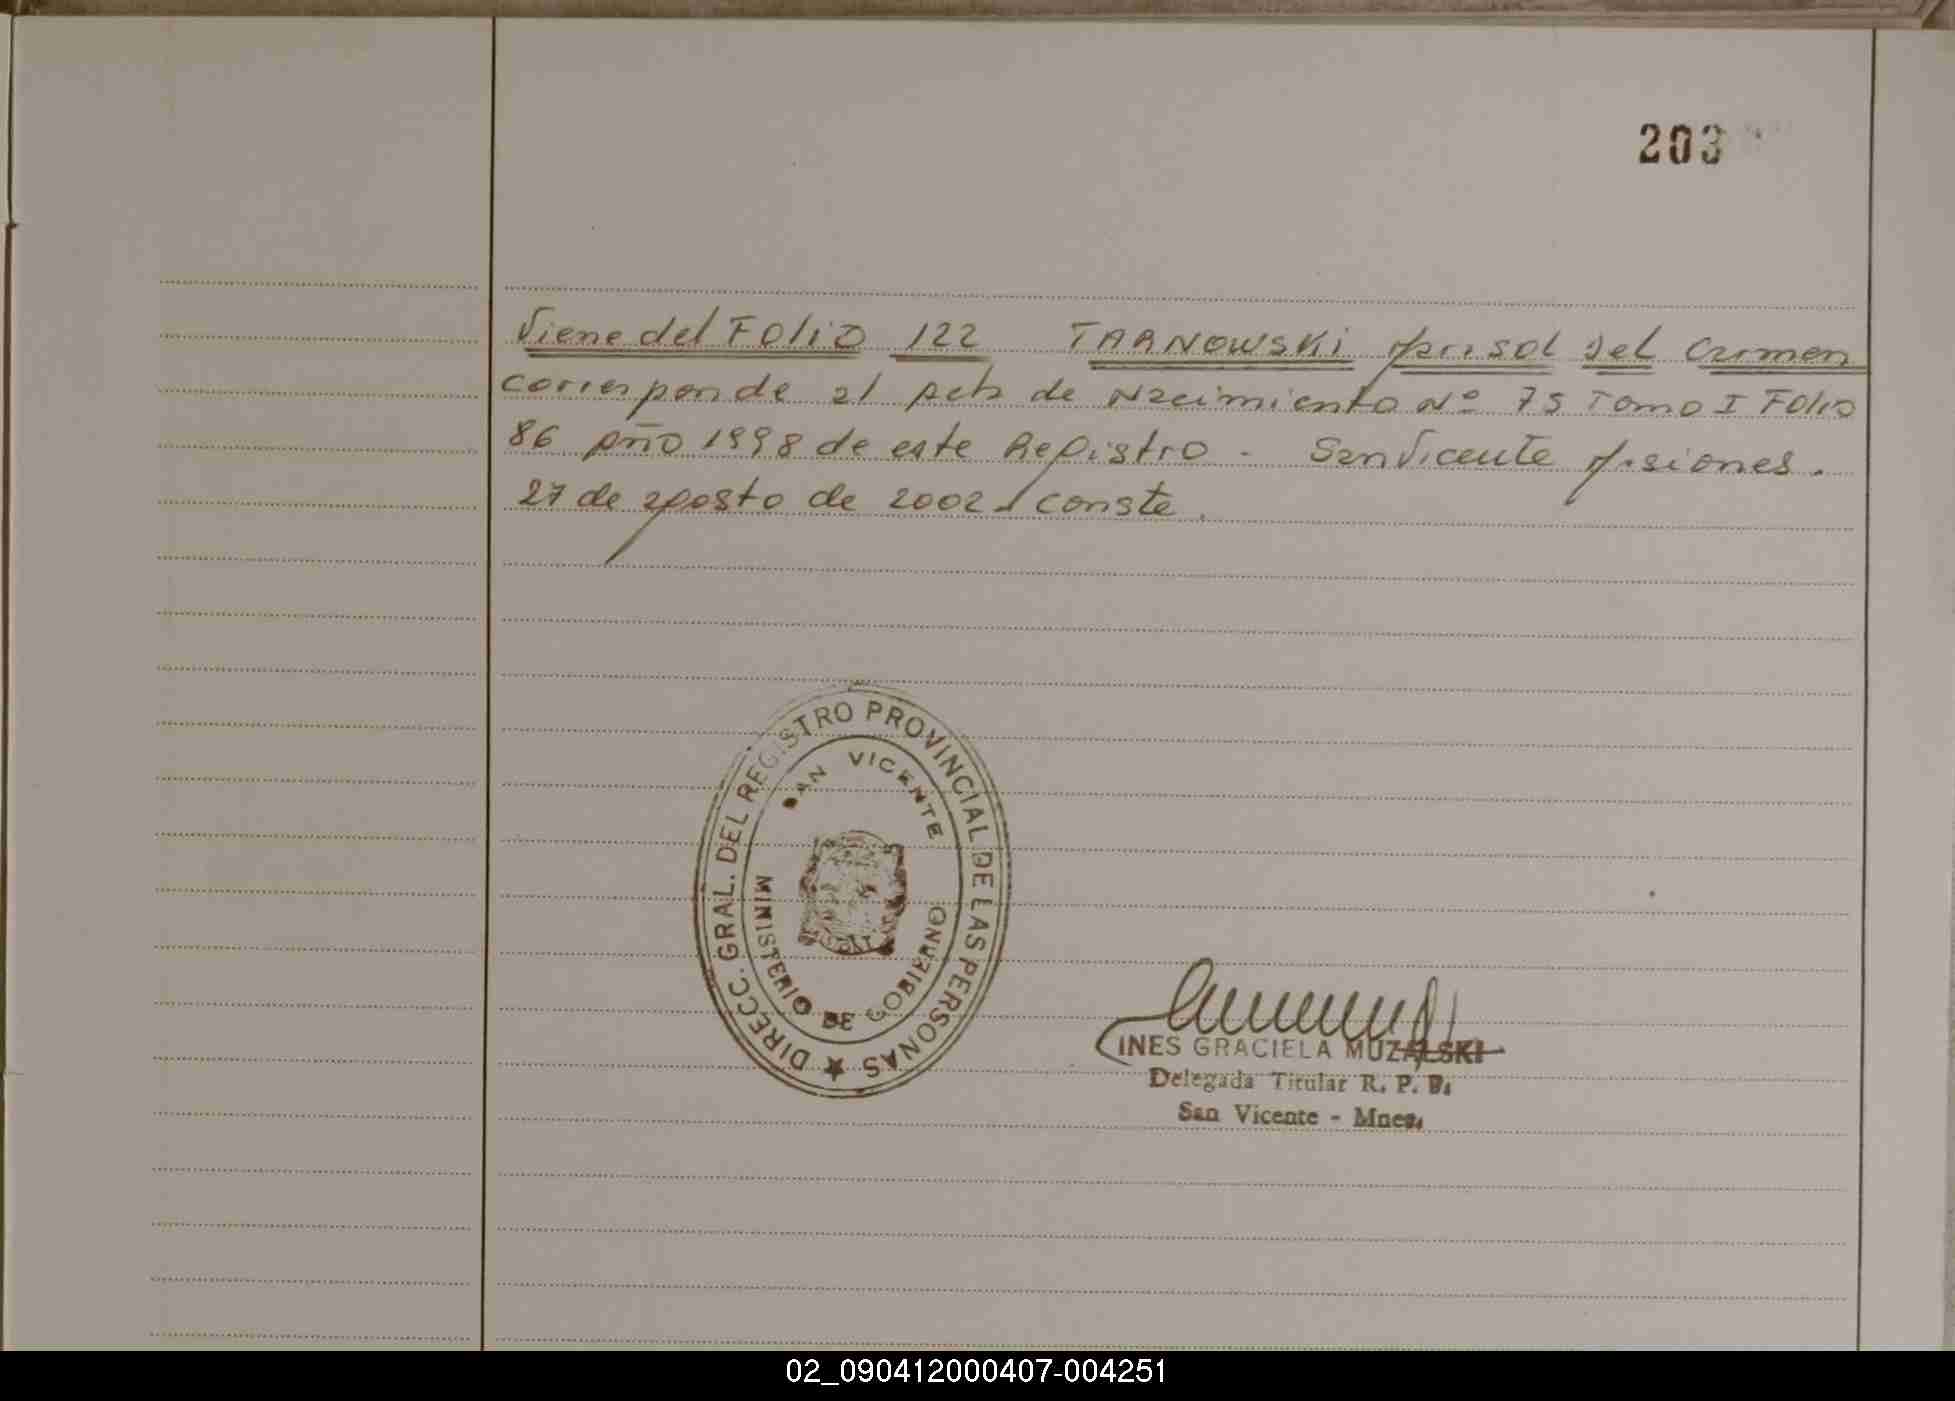 203
Viene del Folio 122 TARNOWSKi Marisol Del Carmen
corresponde al Acta de Nacimiento Nº 75 Tomo I Folio
86 Año 1998 de este Registro - San Vicente Misiones.
27 de agosto de 2002. Conste.
DIRECC. GRAL. DEL REGISTRO PROVINCIAL DE LAS PERSONAS ★
SAN VICENTE
MINISTERIO DE GOBIERNO
INES GRACIELA MUZALSKI
Delegada Titular R. P. P.
San Vicente - Mnes.
02_090412000407-004251